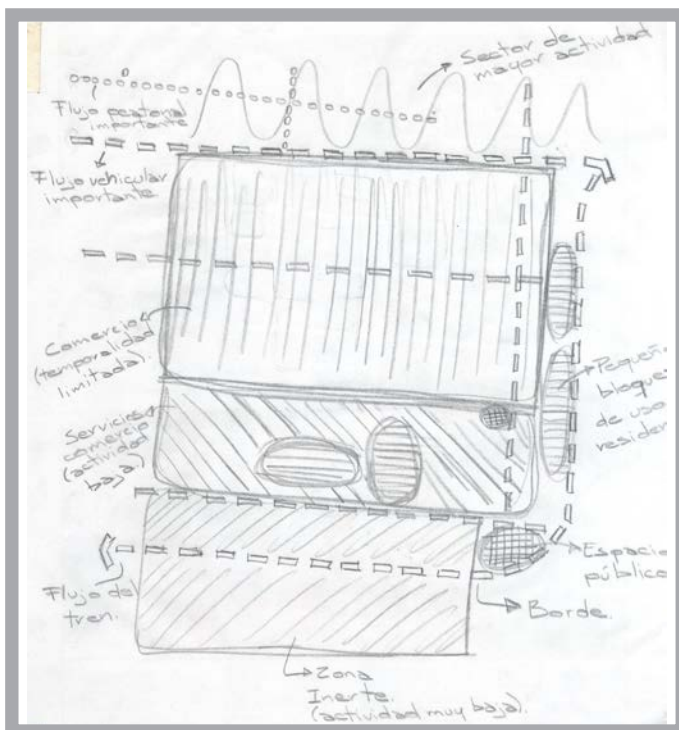 Sector de
mayor actividad
Flujo peatonal
importante
Flujo vehicular
importante
Comercio
(temporalidad
limitada).
Servicios
comercio
(actividad
baja)
Pequeñ
bloque
de uso
resider
Espacio
público
Flujo del
tren.
Borde.
Zona
Inerte.
(actividad muy baja).